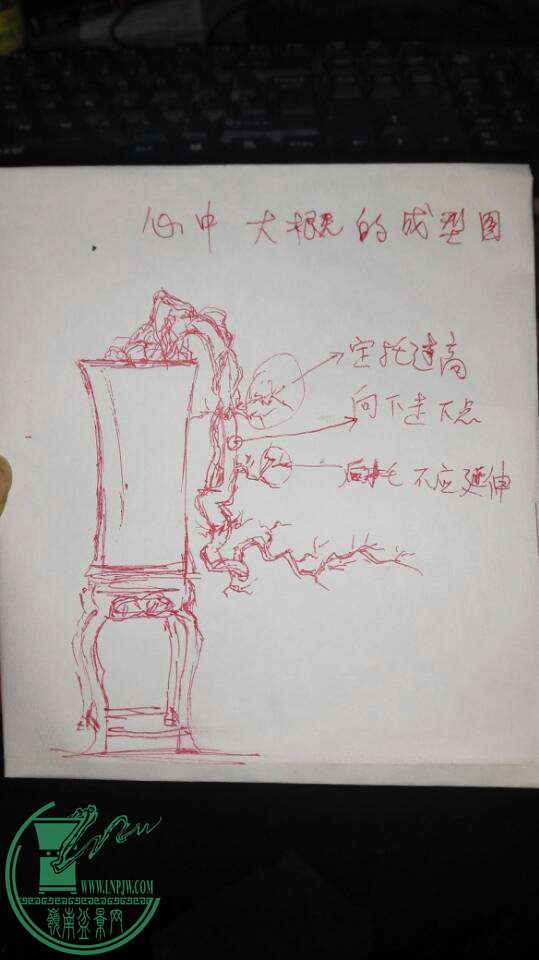 心中大概的成型图
定托过高
向下走大点
后托不应延伸
WWW.LNPJW.COM
嶺南盆景网